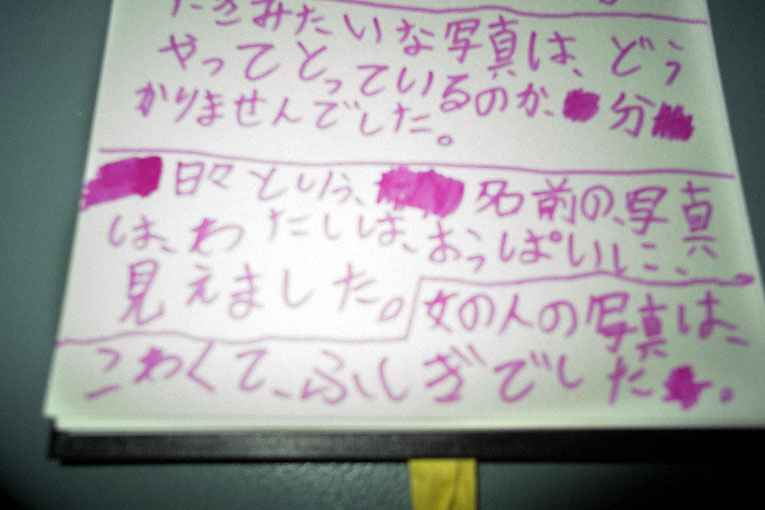 たきみたいな写真は、どう
やってとっているのか、分
かりませんでした。
日々という、名前の、写真
は、わたしは、おっぱいに、
見えました。女の人の写真は、
こわくて、ふしぎでした。